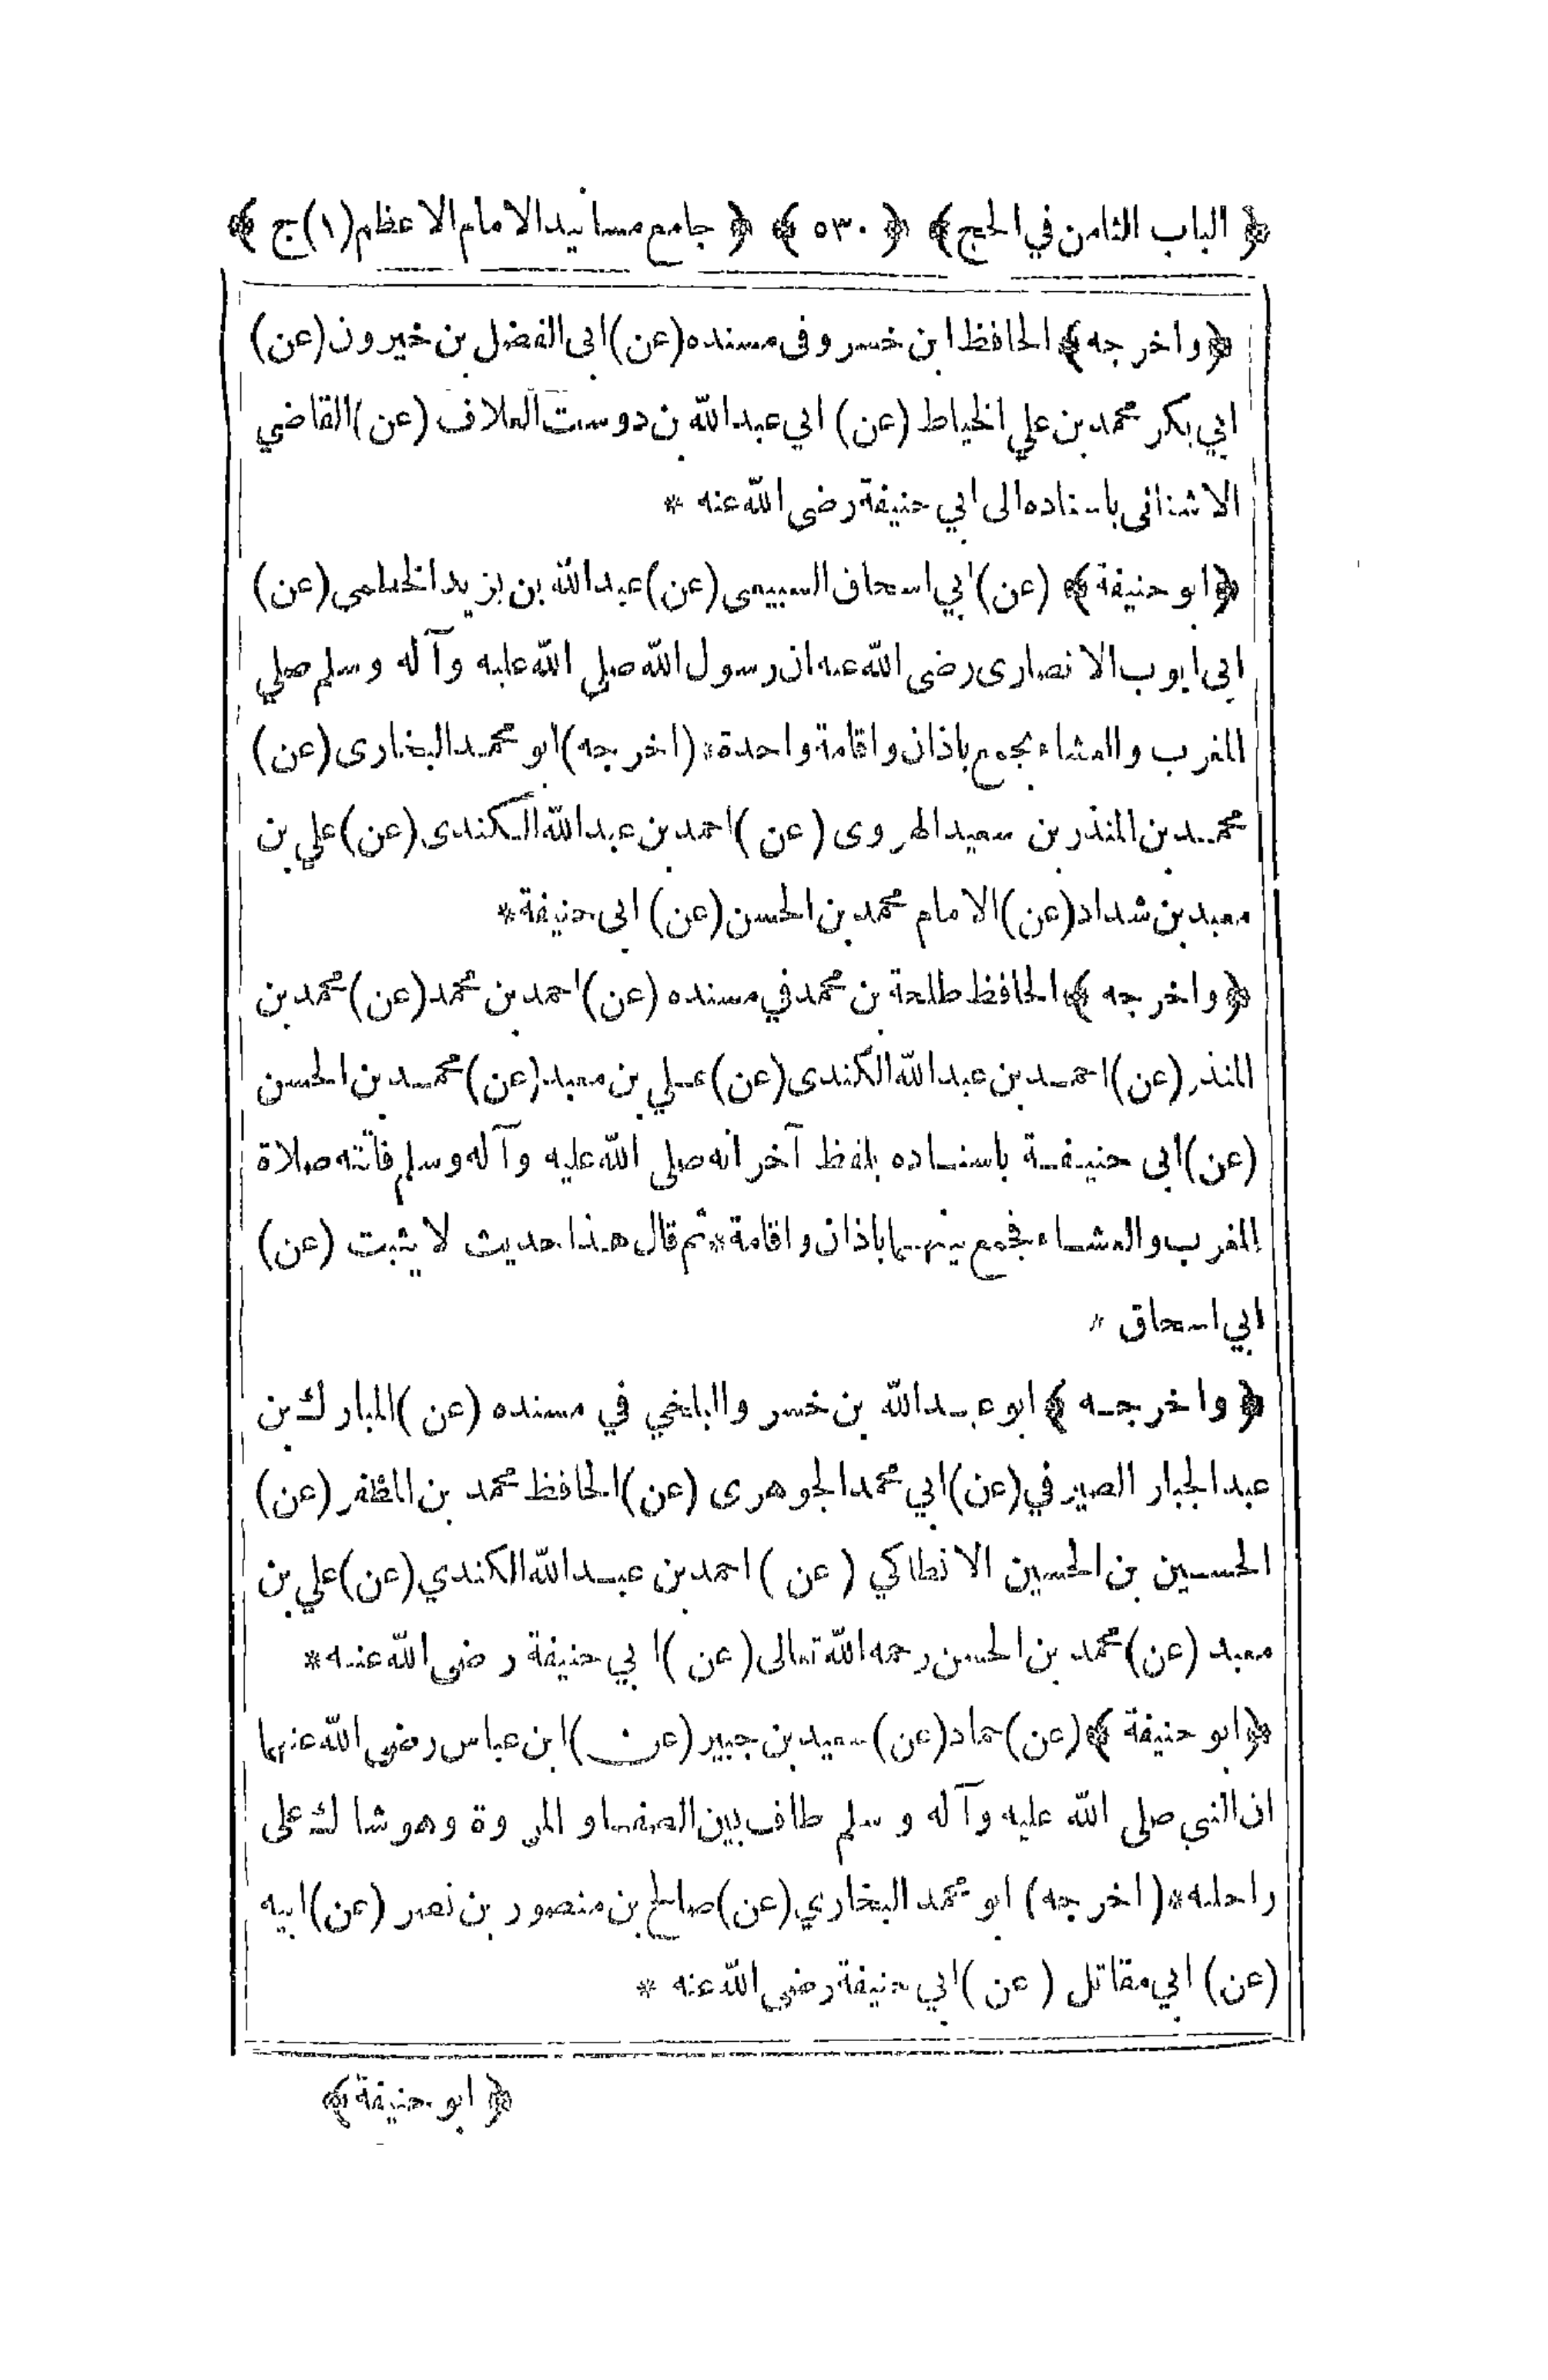 ﴿ الباب الثامن في الحج ﴾ ﴿ ٥٣٠ ﴾ ﴿ جامع مسانيد الامام الاعظم (١) ج ﴾
﴿ واخرجه ﴾ الحافظ ابن خسرو فى مسنده (عن) ابى الفضل بن خيرون (عن)
ابي بكر محمد بن علي الخياط (عن) ابي عبد الله بن دوست العلاف (عن) القاضي
الاشنانى باسناده الى ابي حنيفة رضى الله عنه *
﴿ ابو حنيفة ﴾ (عن) ابي اسحاق السبيعى (عن) عبد الله بن يزيد الخطمى (عن)
ابى ايوب الانصارى رضى الله عنه ان رسول الله صلى الله عليه وآله وسلم صلي
المغرب والعشاء بجمع باذان واقامة واحدة * (اخرجه) ابو محمد البخارى (عن)
محمد بن المنذر بن سعيد الهروى (عن) احمد بن عبد الله الكندى (عن) علي بن
معبد بن شداد (عن) الامام محمد بن الحسن (عن) ابى حنيفة *
﴿ واخرجه ﴾ الحافظ طلحة بن محمد في مسنده (عن) احمد بن محمد (عن) محمد بن
المنذر (عن) احمد بن عبد الله الكندى (عن) علي بن معبد (عن) محمد بن الحسن
(عن) ابى حنيفة باسناده بلفظ آخر انه صلى الله عليه وآله وسلم فاتته صلاة
المغرب والعشاء فجمع بينهما باذان واقامة * ثم قال هذا حديث لا يثبت (عن)
ابي اسحاق *
﴿ واخرجه ﴾ ابو عبد الله بن خسرو البلخي في مسنده (عن) المبارك بن
عبد الجبار الصيرفي (عن) ابي محمد الجوهرى (عن) الحافظ محمد بن المظفر (عن)
الحسين بن الحسين الانطاكي (عن) احمد بن عبد الله الكندي (عن) علي بن
معبد (عن) محمد بن الحسن رحمه الله تعالى (عن) ابي حنيفة رضى الله عنه *
﴿ ابو حنيفة ﴾ (عن) حماد (عن) سعيد بن جبير (عن) ابن عباس رضى الله عنهما
ان النبي صلى الله عليه وآله وسلم طاف بين الصفا والمروة وهو شاك على
راحلته * (اخرجه) ابو محمد البخاري (عن) صالح بن منصور بن نصر (عن) ابيه
(عن) ابي مقاتل (عن) ابي حنيفة رضى الله عنه *
﴿ ابو حنيفة ﴾